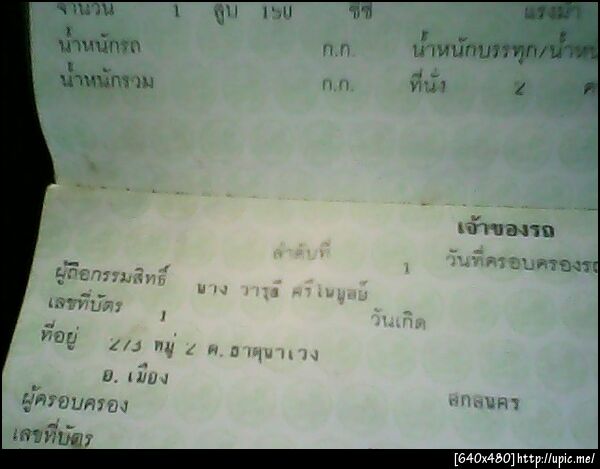 จำนวน 1 สูบ 150 ซีซี แรงม้า
น้ำหนักรถ ก.ก. น้ำหนักบรรทุก/น้ำหน
น้ำหนักรวม ก.ก. ที่นั่ง 2 ค
เจ้าของรถ
ลำดับที่ 1 วันที่ครอบครองรถ
ผู้ถือกรรมสิทธิ์ นาง วารุณี
เลขที่บัตร 1 วันเกิด
ที่อยู่ 273 หมู่ 2 ต.ธาตุนาเวง
อ.เมือง สกลนคร
ผู้ครอบครอง
เลขที่บัตร
[640x480]http://upic.me/